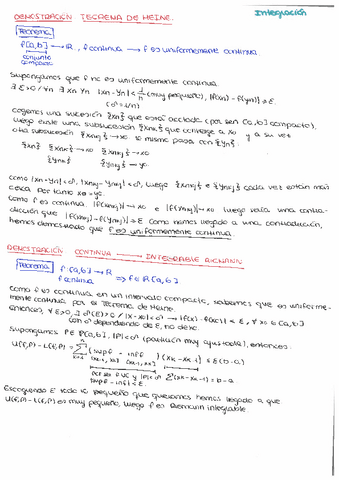 Integración
DEMOSTRACIÓN TEOREMA DE HEINE.
Teorema
f:[a,b] → R, f continua → f es uniformemente continua.
conjunto
compacto
Supongamos que f no es uniformemente continua.
∃ε>0 / ∀n ∃ xn, yn |xn-yn| < 1/n (muy pequeño), |f(xn)-f(yn)| ≥ ε.
(δ=1/n)
Cogemos una sucesión {xn} que está acotada (por ser [a,b] compacto),
luego existe una subsucesión {xnk} que converge a x0 y a su vez
otra subsucesión {xnkj} → x0 lo mismo pasa con {yn}.
{xn} {xnk} → x0 {xnkj} → x0
{ynk} {ynkj} → y0.
Como |xn-yn| < δ, |xnkj-ynkj| < δ, luego {xnkj} e {ynkj} cada vez están más
cerca. Por tanto x0=y0.
Como f es continua |f(xnkj)| → x0 e |f(ynkj)| → x0 luego sería una contra-
dicción que |f(xnkj)-f(ynkj)| ≥ ε. Como hemos llegado a una contradicción,
hemos demostrado que f es uniformemente continua.
DEMOSTRACIÓN CONTINUA → INTEGRABLE RIEMANN
Teorema f:[a,b] → R
f continua ⇒ f ∈ R[a,b]
Como f es continua en un intervalo compacto, sabemos que es uniforme-
mente continua por el Teorema de Heine.
Entonces, ∀ε>0, ∃ δ(ε)>0 / |x-x0| < δ → |f(x)-f(x0)| < ε, ∀x0 ∈ [a,b]
con δ dependiendo de ε, no de x0.
Supongamos P ∈ P[a,b], |P| < δ (partición muy ajustada), entonces:
U(f,P) - L(f,P) = Σ (sup f - inf f) (xk - xk-1) ≤ ε(b-a)
[xk-1, xk] [xk-1, xk]
por ser f UC y |P|<δ Σ(xk-xk-1) = b-a
sup f - inf f < ε.
Escogiendo ε todo lo pequeño que queramos hemos llegado a que
U(f,P) - L(f,P) es muy pequeño, luego f es Riemann integrable.